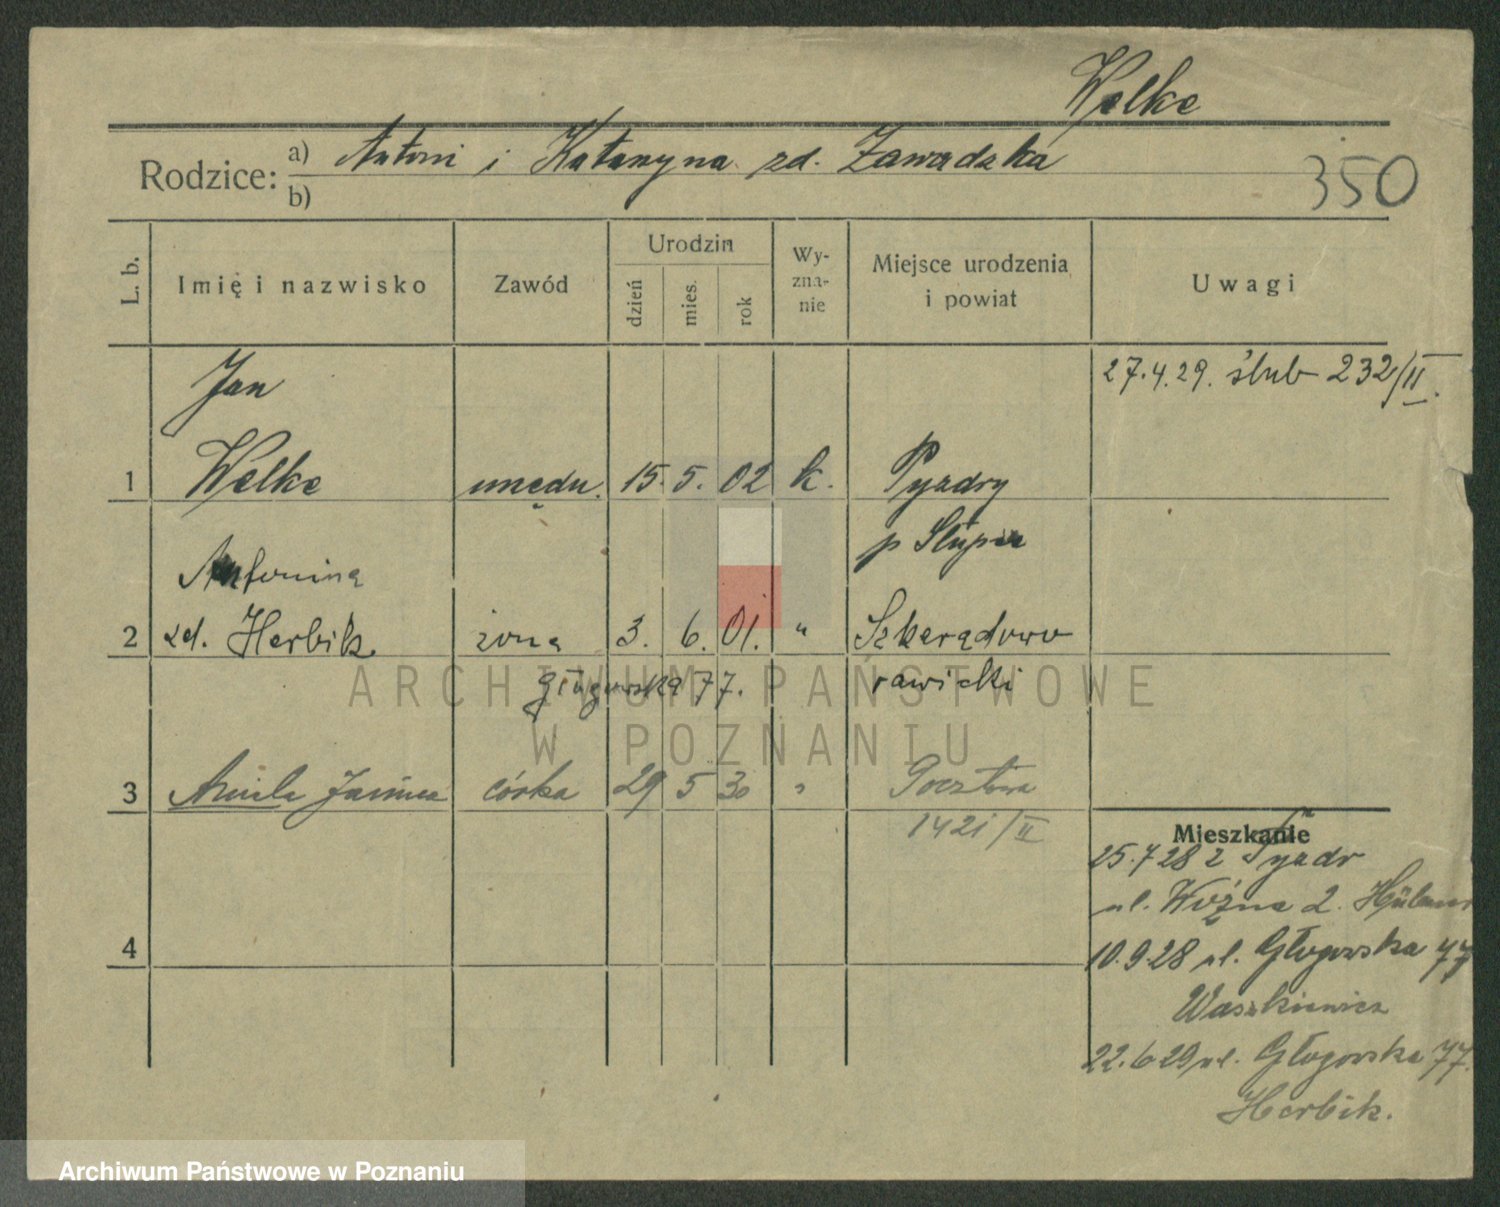 Welke
Rodzice: a) Antoni i Katarzyna zd. Zawadzka
b)
350
L. b. Imię i nazwisko Zawód Urodzin dzień mies. rok Wy-zna-nie Miejsce urodzenia i powiat Uwagi
27.4.29. ślub 232/II.
Jan
1 Welke 15. 5. 02 k. Pyzdry
p Słupca
Antonina
2 zd. Herbik żona 3. 6. 01. " Szkaradowo
głogowska 77. rawicki
3 Janina córka 29 5 30 " Pocztowa
1421/II
Mieszkanie
25.7 28 z Pyzdr
ul. Woźna 2.
4
10.9.28 ul. Głogowska 77
Waszkiewicz
22.6 29 ul. Głogowska 77.
Herbik.
ARCHIWUM PAŃSTWOWE
W POZNANIU
Archiwum Państwowe w Poznaniu